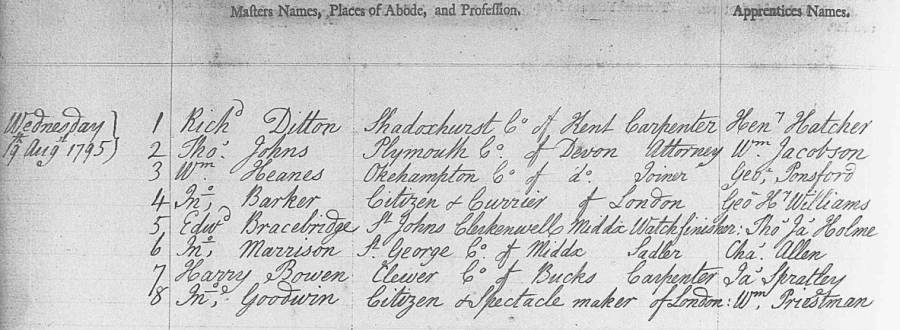 Masters Names, Places of Abode, and Profeſſion. Apprentices Names.
Wednesday 1 Richd Ditton Shadoxhurst Co of Kent Carpenter Henr Hatcher
19th Augst 1795 2 Thos Johns Plymouth Co. of Devon Attorney Wm Jacobson
3 Wm Heanes Okehampton Co of do Joiner Geo. Ponsford
4 Jno Barker Citizen & Currier of London Geo Hy Williams
5 Edwd Bracebridge St Johns Clerkenwell Middx Watchfinisher: Tho Ja Holme
6 Jno Marrison St George Co of Middx Sadler Cha Allen
7 Harry Bowen Clewer Co of Bucks Carpenter Ja Spratley
8 Jno Goodwin Citizen & Spectacle maker of London: Wm Priestman